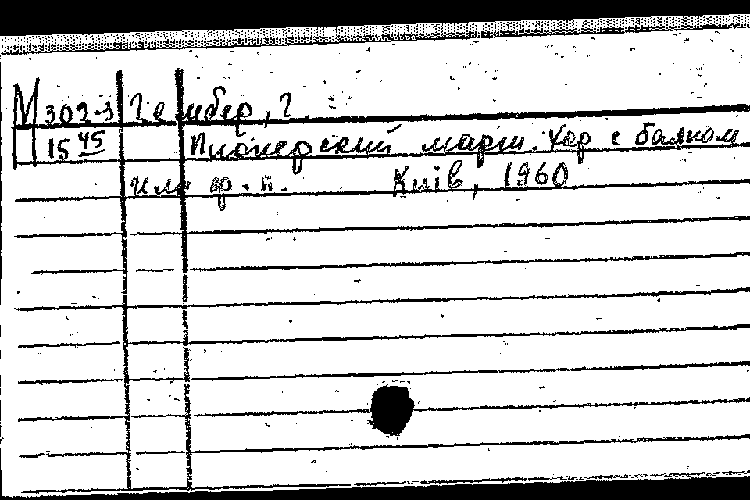 М 302-3 Гембер, Г.
15 45 Пионерский марш. Хор с баяном
или ф.-п. Київ, 1960